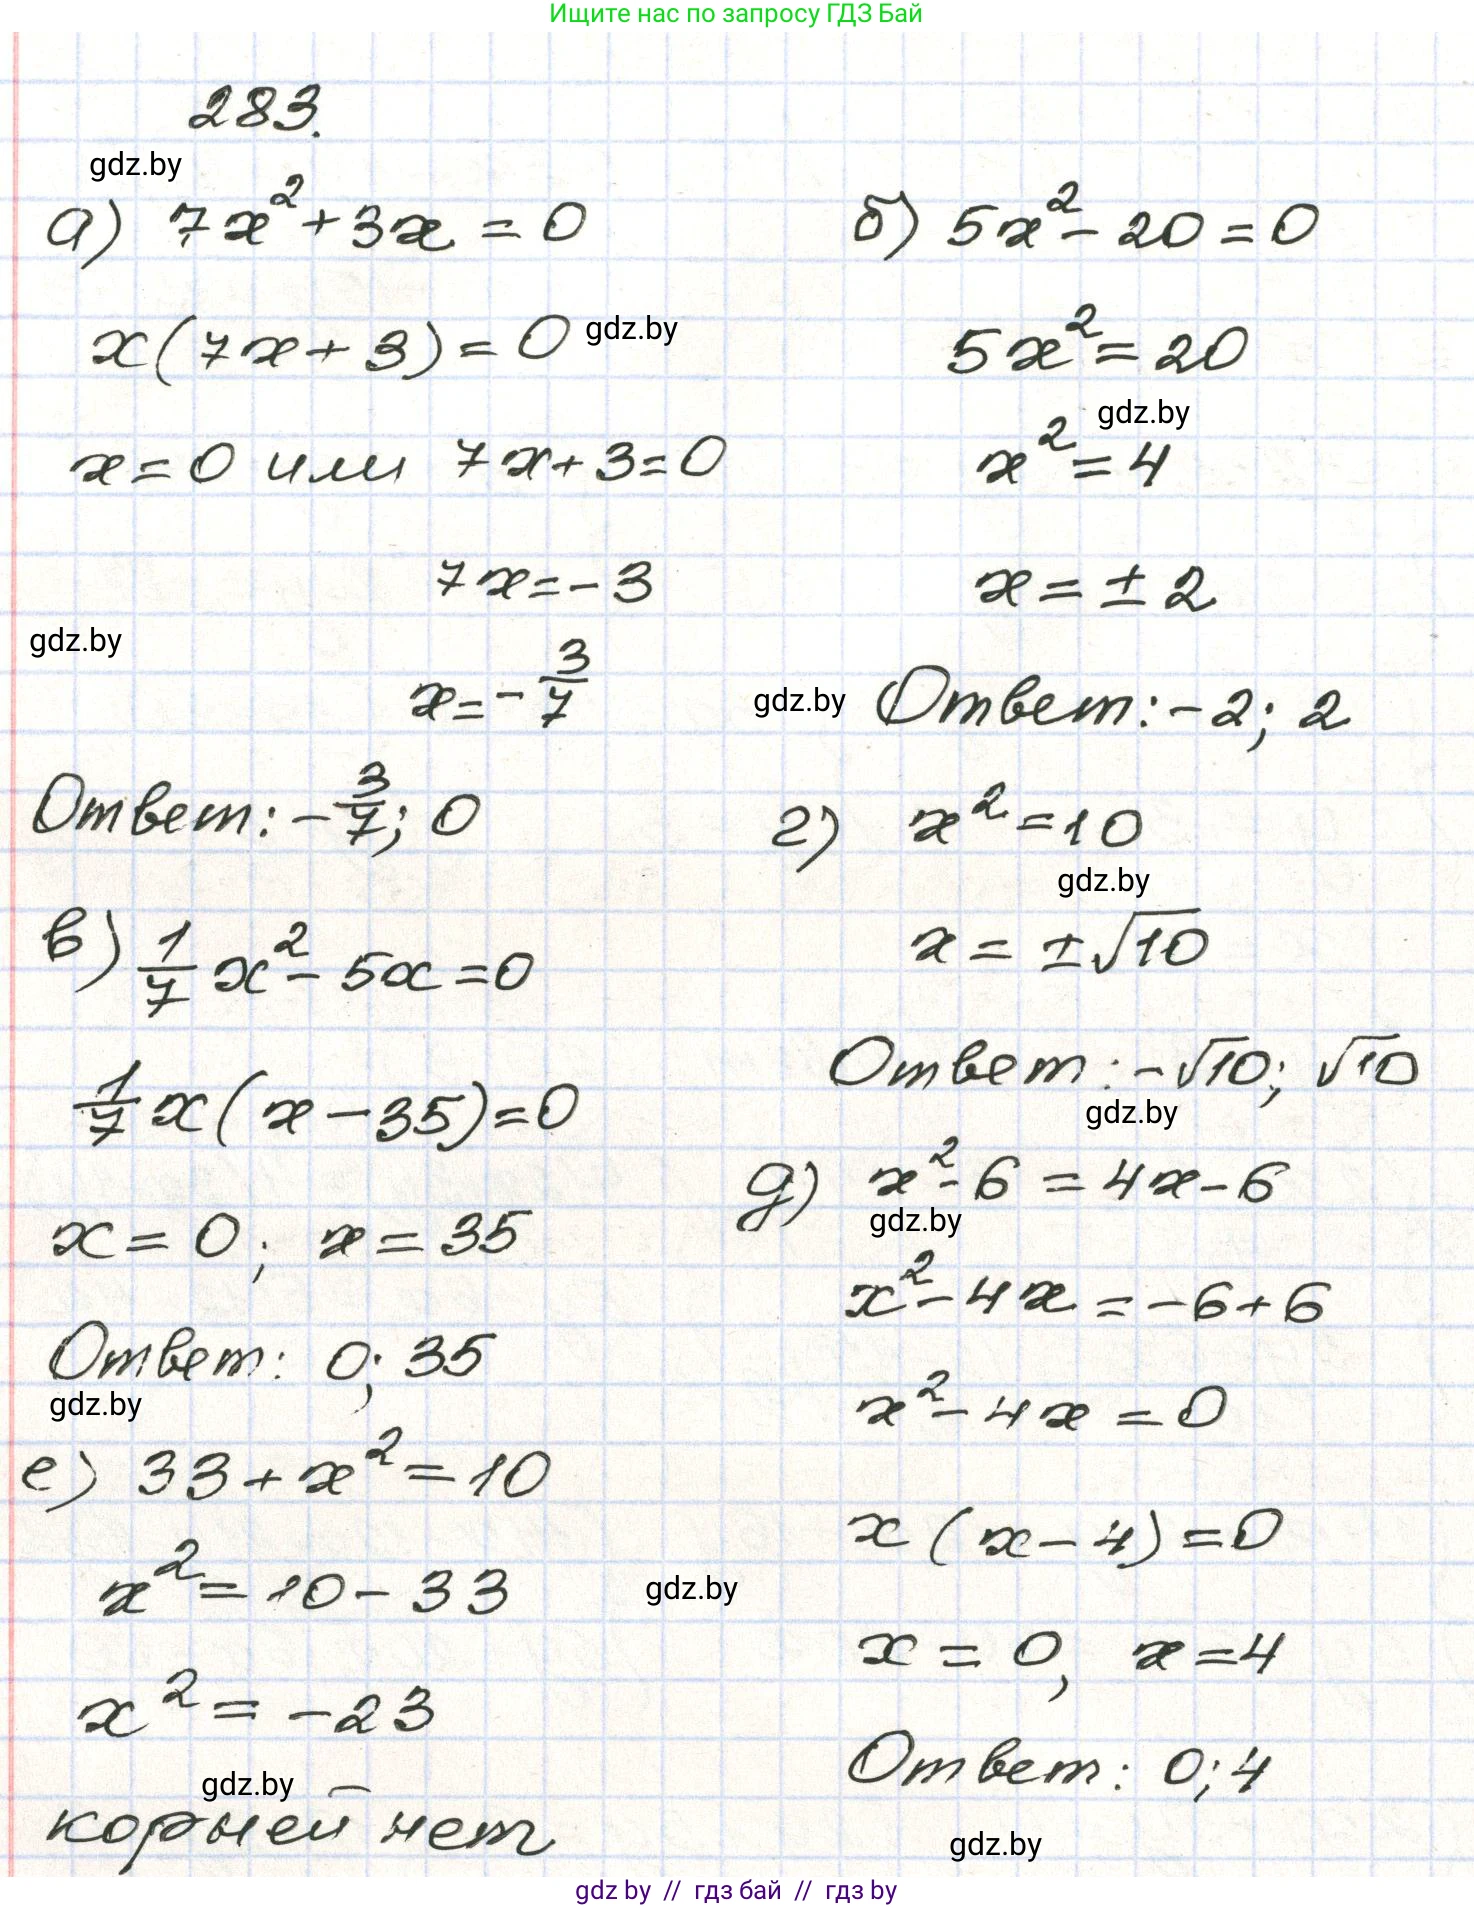 Ищите нас по запросу ГДЗ Бай
283.
gdz.by
а) 7x² + 3x = 0
x(7x + 3) = 0 gdz.by
x = 0 или 7x + 3 = 0
7x = -3
gdz.by
x = -3/7
Ответ: -3/7; 0
б) 5x² - 20 = 0
5x² = 20
gdz.by
x² = 4
x = ± 2
gdz.by Ответ: -2; 2
в) 1/7 x² - 5x = 0
1/7 x(x - 35) = 0
x = 0; x = 35
Ответ: 0; 35
gdz.by
г) x² = 10
gdz.by
x = ±√10
Ответ: -√10; √10
gdz.by
д) x² - 6 = 4x - 6
gdz.by
x² - 4x = -6 + 6
x² - 4x = 0
x(x - 4) = 0
x = 0, x = 4
Ответ: 0; 4
gdz.by
е) 33 + x² = 10
x² = 10 - 33
gdz.by
x² = -23
gdz.by
корней нет
gdz by // гдз бай // гдз by